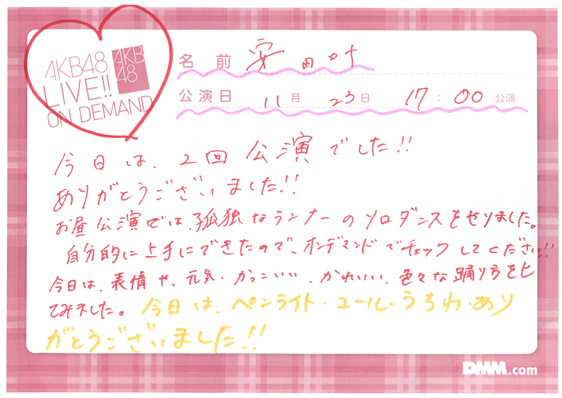 AKB48
LIVE!!
ON DEMAND
AKB
48
名前 安田叶
公演日 11月 23日 17:00 公演
今日は、2回公演でした!!
ありがとうございました!!
お昼公演では、孤独なランナーのソロダンスをやりました。
自分的に上手にできたので、オンデマンドでチェックしてください!!
今日は、表情や、元気・かっこいい、かわいい、色々な踊り方をし
てみました。今日は、ペンライト・コール・うちわ・あり
がとうございました!!
DMM.com